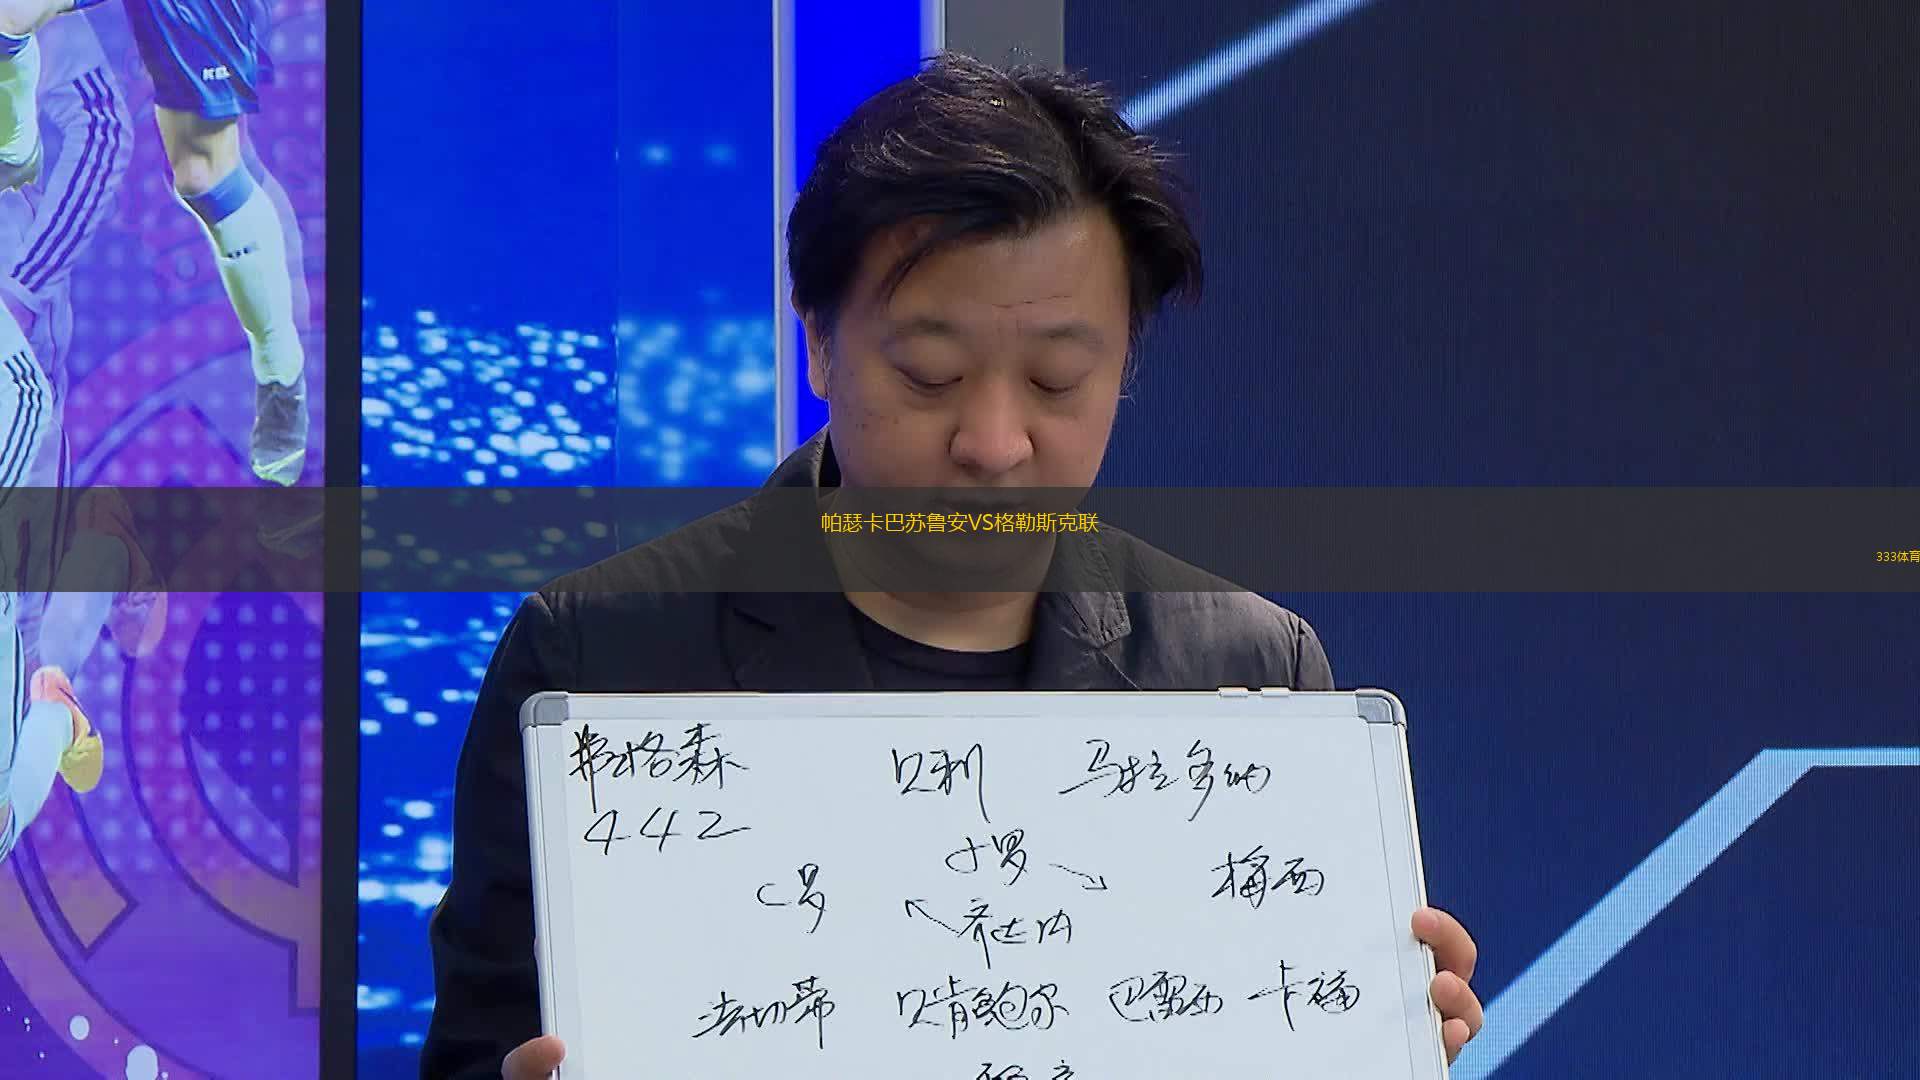 帕瑟卡巴苏鲁安VS格勒斯克联
333体育
弗格森 贝利 马拉多纳
442
小罗
C罗 梅西
齐达内
法切蒂 贝肯鲍尔 巴雷西 卡福